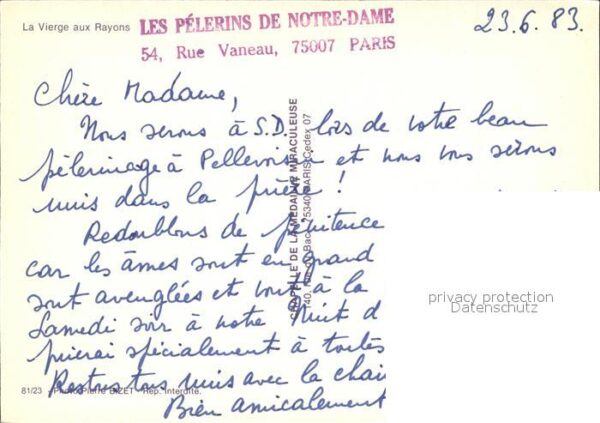 La Vierge aux Rayons
LES PÉLERINS DE NOTRE-DAME
54, Rue Vaneau, 75007 PARIS
23.6.83.
Chère Madame,
Nous serons à S.D. lors de votre beau
pèlerinage à Pellevoisin et nous vous serons
unis dans la prière !
Redoublons de pénitence
car les âmes sont en grand
sont aveuglées et vont à la
Samedi soir à notre Nuit d
prierai spécialement à toutes
Restons tous unis avec la
Bien amicalement
CHAPELLE DE LA MÉDAILLE MIRACULEUSE
140, Rue du Bac - 75340 PARIS Cedex 07
privacy protection
Datenschutz
81/23 - Photo Pierre BIZET - Rep. interdite.